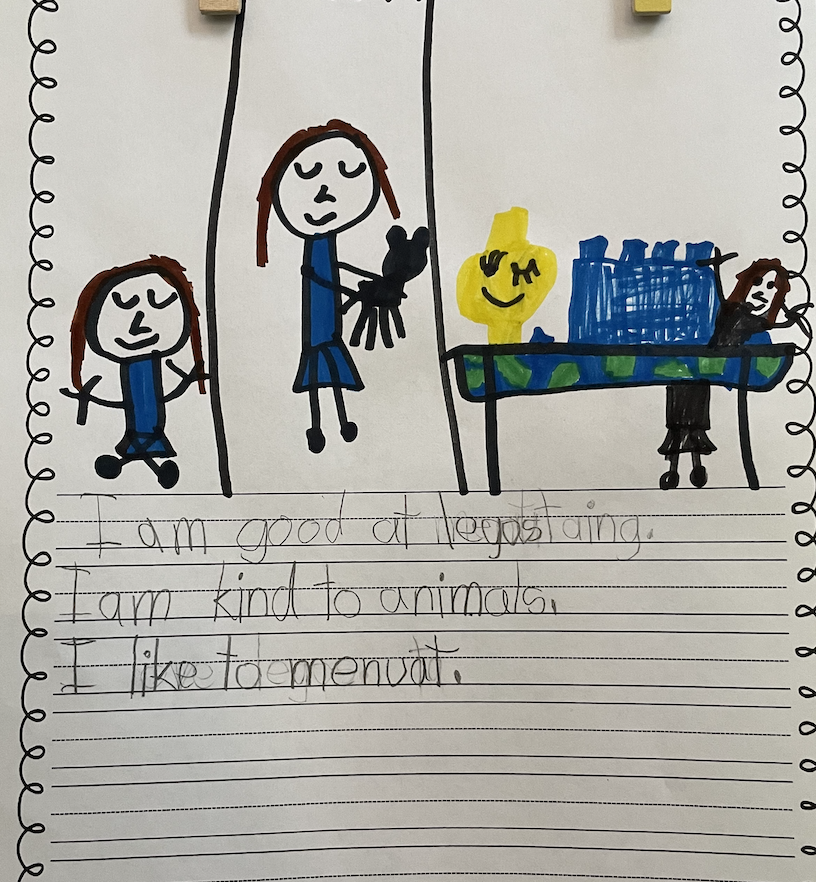 I am good at legos
I am kind to animals.
I like to